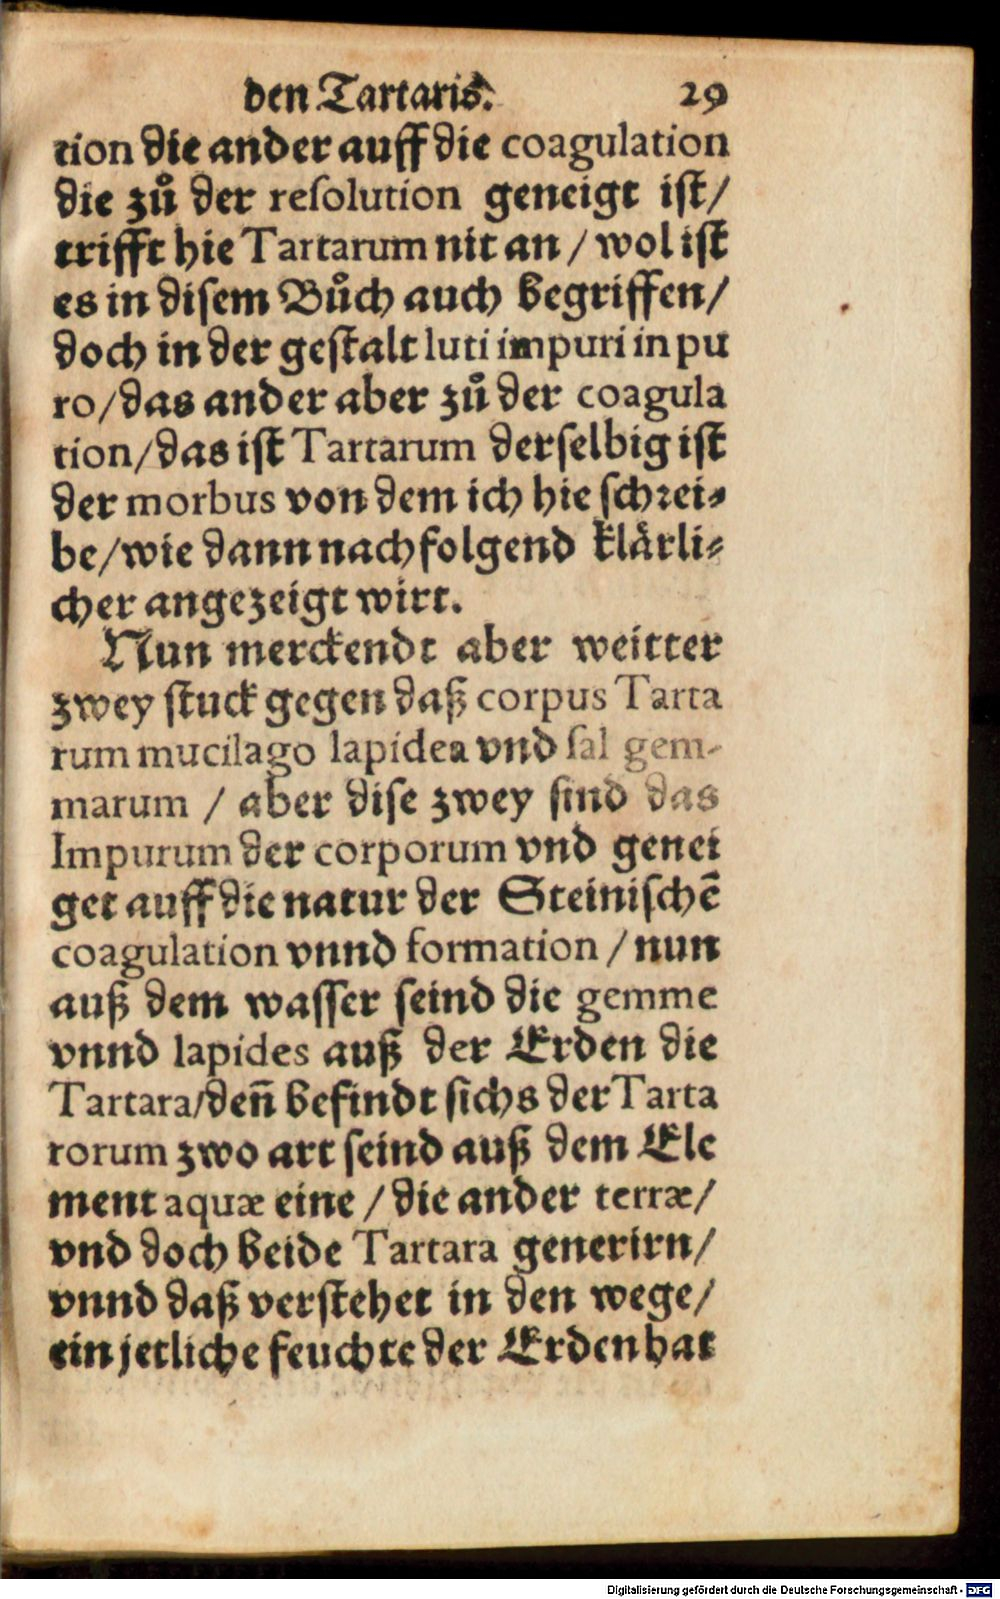 den Tartaris. 29
tion die ander auff die coagulation
die zuͦ der resolution geneigt ist/
trifft hie Tartarum nit an / wol ist
es in disem Buͦch auch begriffen/
doch in der gestalt luti impuri in pu
ro/das ander aber zuͦ der coagula
tion/das ist Tartarum derselbig ist
der morbus von dem ich hie schrei⸗
be/wie dann nachfolgend klaͤrli⸗
cher angezeigt wirt.
Nun merckendt aber weitter
zwey stuck gegen daß corpus Tarta
rum mucilago lapidea vnd sal gem-
marum / aber dise zwey sind das
Impurum der corporum vnd genei
get auff die natur der Steinischē
coagulation vnnd formation / nun
auß dem wasser seind die gemme
vnnd lapides auß der Erden die
Tartara/den̄ befindt sichs der Tarta
rorum zwo art seind auß dem Ele
ment aquæ eine / die ander terræ/
vnd doch beide Tartara generirn/
vnnd daß verstehet in den wege/
ein jetliche feuchte der Erden hat
Digitalisierung gefördert durch die Deutsche Forschungsgemeinschaft - DFG